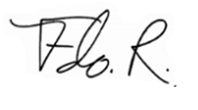 Fdo. R.